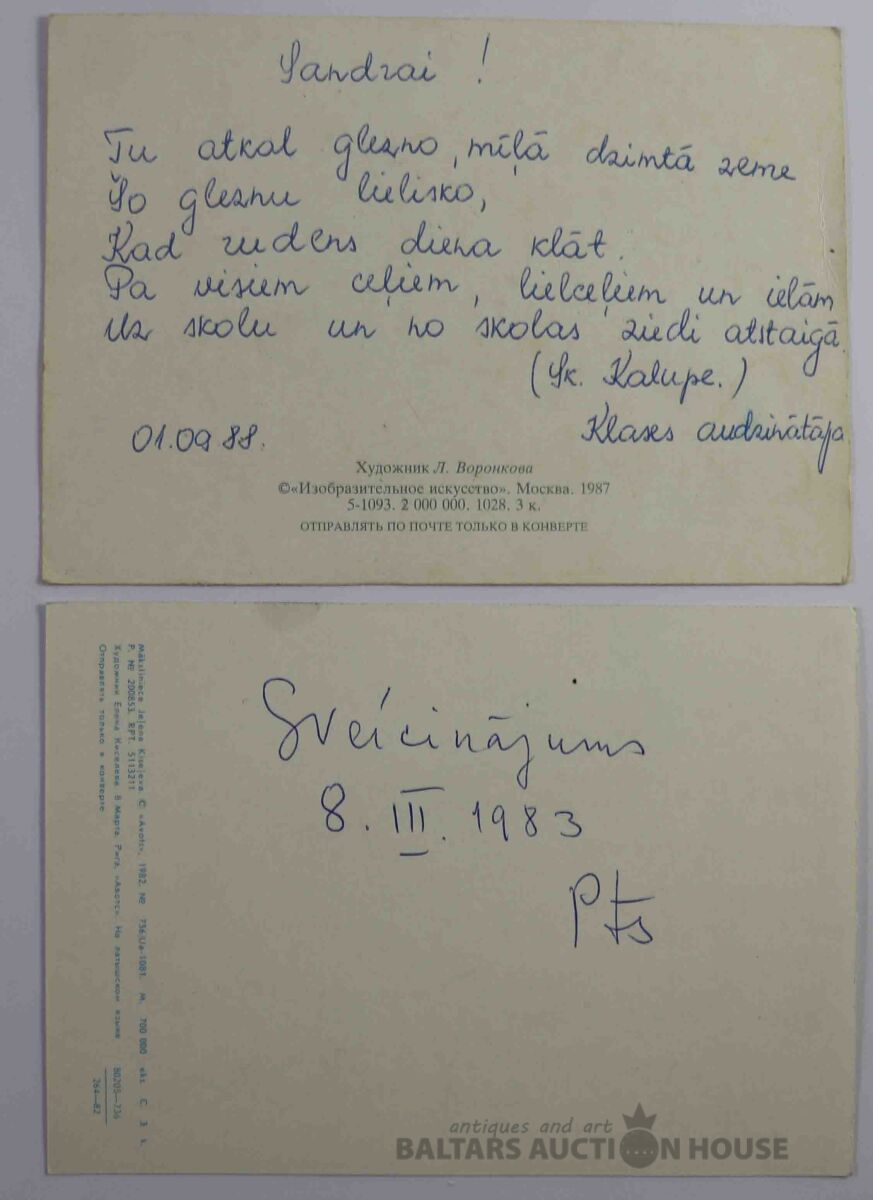 Sandrai !
Tu atkal glezno, mīļā dzimtā zeme
Šo gleznu lielisko,
Kad rudens diena klāt.
Pa visiem ceļiem, lielceļiem un ielām
Uz skolu un no skolas ziedi atstaigā.
(Sk. Kaļupe.)
01.09 88.
Klases audzinātāja
Художник Л. Воронкова
©«Изобразительное искусство». Москва. 1987
5-1093. 2 000 000. 1028. 3 к.
ОТПРАВЛЯТЬ ПО ПОЧТЕ ТОЛЬКО В КОНВЕРТЕ
Māksliniece Jeļena Kiseļeva © «Avots», 1982. № 736-Ua-1081. M. 700 000 eks C. 3 k.
P. № 200853. RPT. 5113211
Художник Елена Киселева. 8 Марта. Рига, «Авотс». На латышском языке 80205—736
264—82
Отправлять только в конверте
Sveicinājums
8. III. 1983
Pts
antiques and art
BALTARS AUCTION HOUSE